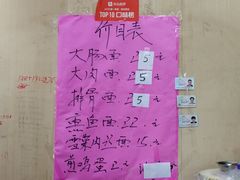 TOP10口味榜
价目表
大肠面 25元
大肉面 25元
排骨面 25元
鱼面 22元
雪菜肉丝面 15元
煎鸡蛋 2元